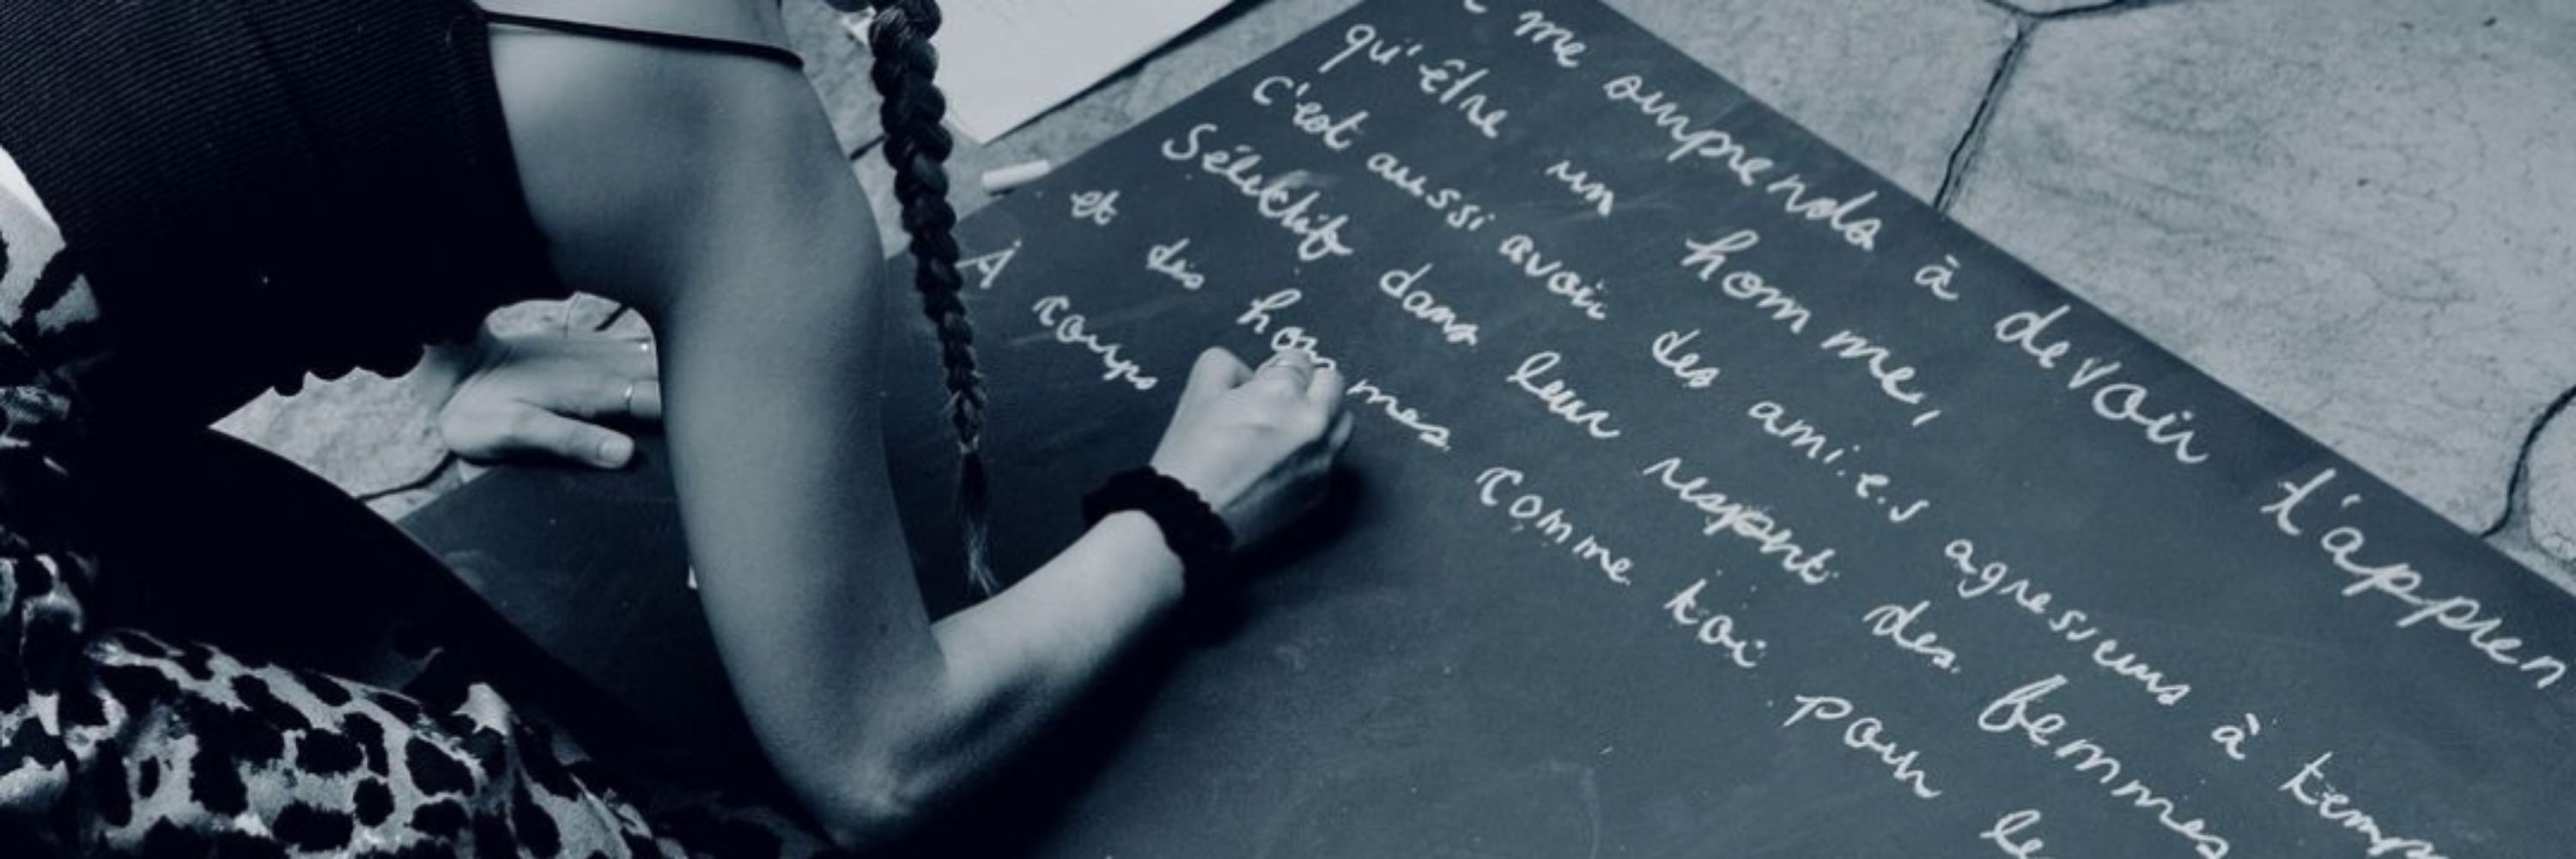 me surprends à devoir t'appren
qu'être un homme,
c'est aussi avoir des ami.e.s agresseurs à temp
Sélectifs dans leur respect des femmes
et des hommes comme toi pour le
À coups